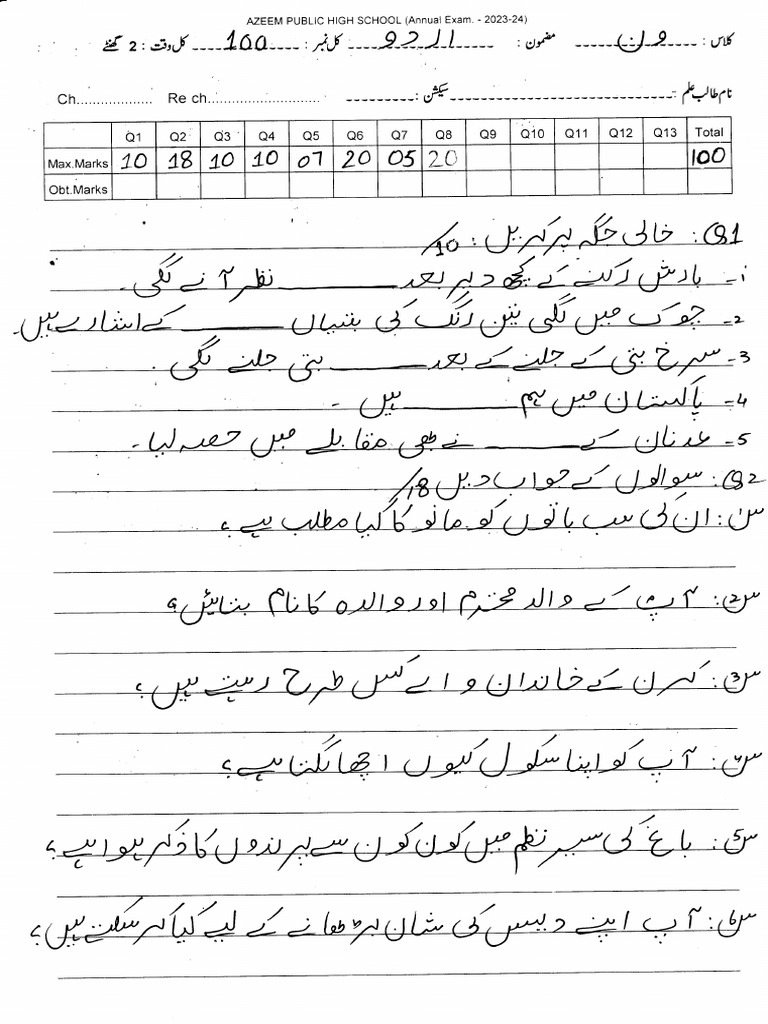 AZEEM PUBLIC HIGH SCHOOL (Annual Exam. - 2023-24)
کلاس : ون مضمون : اردو کل نمبر : 100 کل وقت : 2 گھنٹے
نام طالب علم : سیکشن :
Ch.................... Re ch............................
Q1 Q2 Q3 Q4 Q5 Q6 Q7 Q8 Q9 Q10 Q11 Q12 Q13 Total
Max.Marks 10 18 10 10 07 20 05 20 100
Obt.Marks
Q1: خالی جگہ پر کریں : /10
1- بارش رکنے کے کچھ دیر بعد ______ نظر آنے لگی۔
2- چوک میں لگی تین رنگ کی بتیاں ______ کے اشارے ہیں۔
3- سرخ بتی کے جلنے کے بعد ______ بتی جلنے لگی۔
4- پاکستان میں ہم ______ ہیں۔
5- عدنان کے ______ نے بھی مقابلے میں حصہ لیا۔
Q2: سوالوں کے جواب دیں /18
س1: ان کی سب باتوں کو مانو کا کیا مطلب ہے؟
س2: آپ کے والد محترم اور والدہ کا نام بتائیں؟
س3: کرن کے خاندان والے کس طرح رہتے ہیں؟
س4: آپ کو اپنا سکول کیوں اچھا لگتا ہے؟
س5: باغ کی سیر نظم میں کون کون سے پرندوں کا ذکر ہوا ہے؟
س6: آپ اپنے دیس کی شان بڑھانے کے لیے کیا کر سکتے ہیں؟